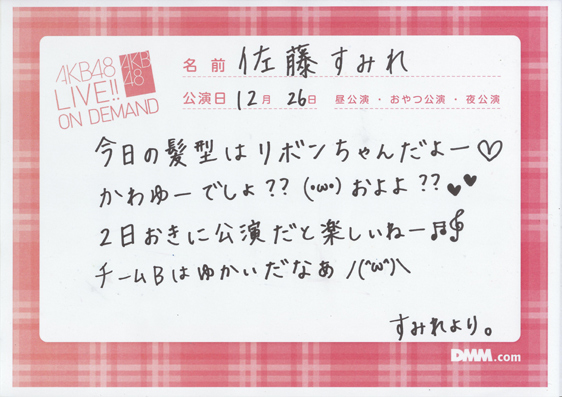 AKB48
LIVE!!
ON DEMAND
AKB
48
名前 佐藤すみれ
公演日 12月 26日 昼公演・おやつ公演・夜公演
今日の髪型はリボンちゃんだよー♡
かわゆーでしょ??(•ω•)およよ??♥♥
2日おきに公演だと楽しいねー♬𝄞
チームBはゆかいだなあ/(^ω^)\
すみれより。
DMM.com